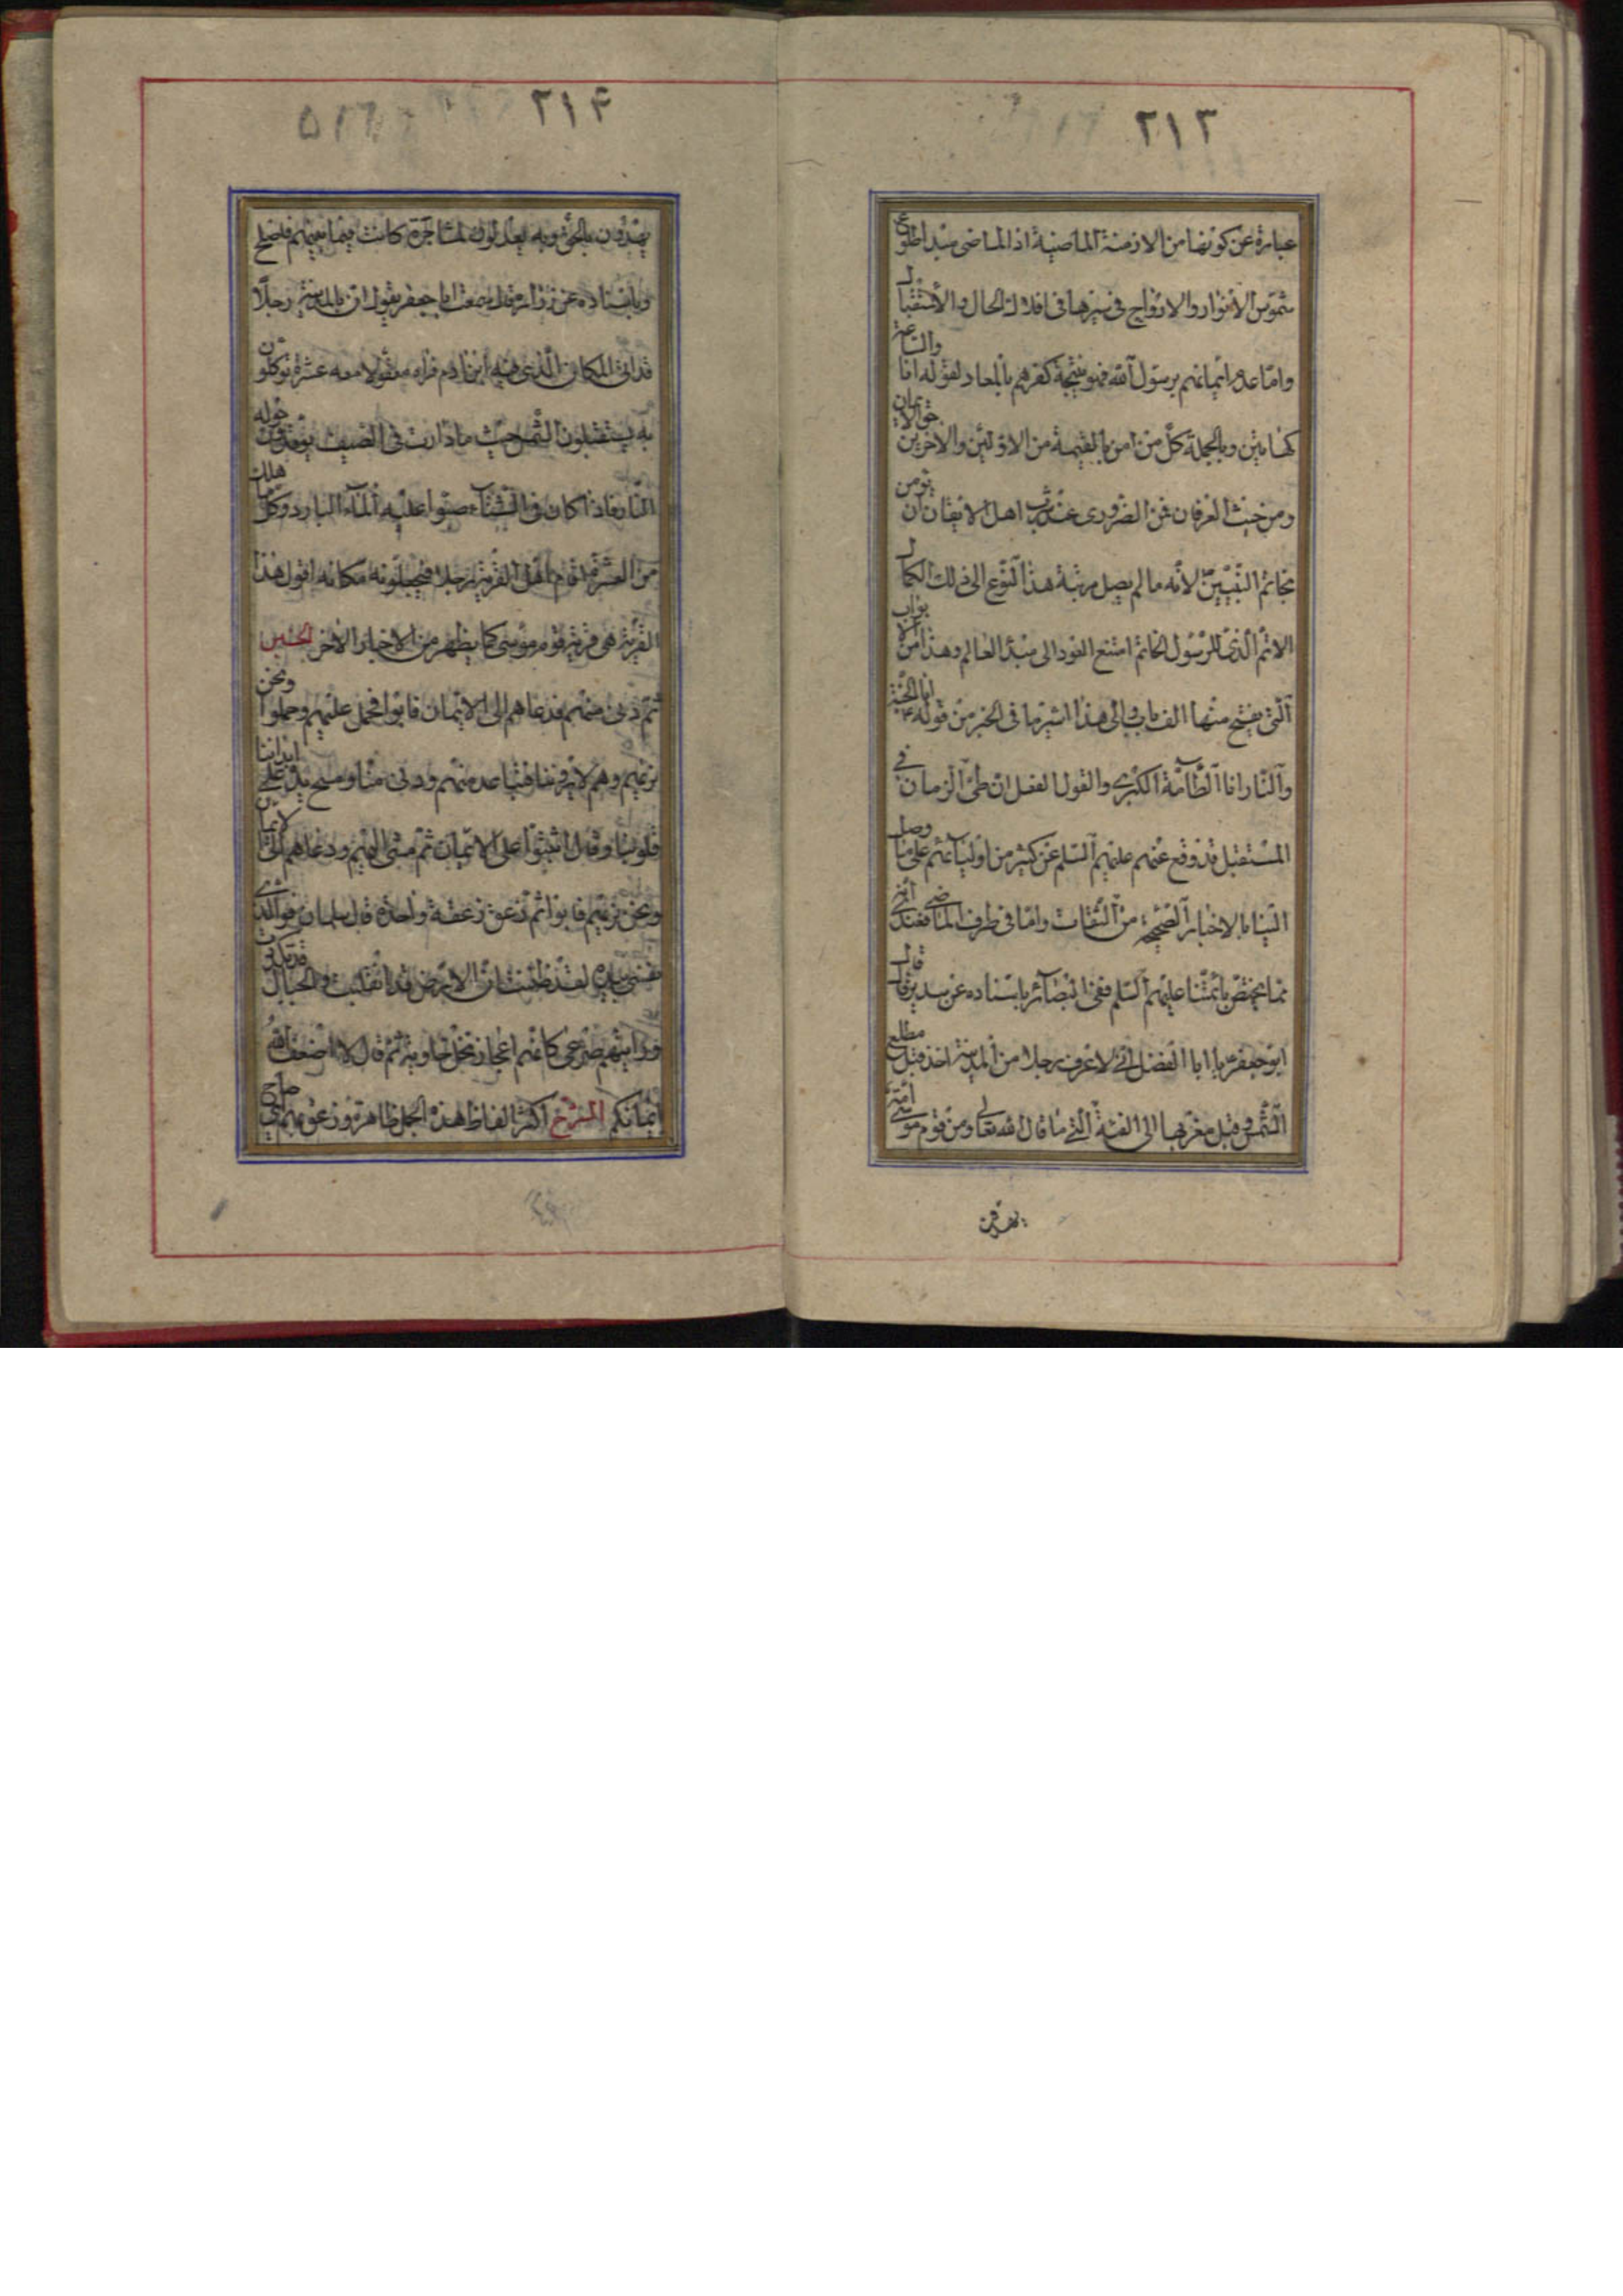 ۲۱۳
عبارة عن كونها من الازمنة الماضية اذ الماضی مبدا طلوع
شموس الانوار والارواح فی سيرها فی افلاك الحال والاستقبال
وامّا عدم ايمانهم برسول الله فهو نتيجة كفرهم بالمعاد لقوله انا والساعة
كهاتين وبالجملة كلّ من امن بالقيمة من الاوّلين والاخرين حقّ الايمان
ومن حيث العرفان فمن الضروری عند اهل الايقان ان يؤمن
بخاتم النبيّين لانّه ما لم يصل مرتبة هذا النّوع الی ذلك الكمال
الاتمّ الّذی للرّسول الخاتم امتنع العود الی مبدء العالم وهذا من الابواب
الّتی يفتح منها الف باب والی هذا اشير ما فی الخبر من قوله انا الجنّة
والنّار انا الطّامّة الكبری والقول الفصل ان طیّ الزمان فی
المستقبل قد وقع عنهم عليهم السّلم عن كثير من اوليائهم علی ما وصل
الينا بالاخبار الصّحيحة من الثّقات وامّا فی طرف الماضی فعندی انّه
ممّا يختصّ بائمّتنا عليهم السّلم ففی البصائر باسناده عن سدير قال قال
ابو جعفر يا ابا الفضل انّی لاعرف رجلا من المدينة اخذ قبل مطلع
الشّمس وقبل مغربها الی الفئة الّتی قال الله تعالی ومن قوم موسی امّة
يهدون
۲۱۴
يهدون بالحقّ وبه يعدلون لمشاجرة كانت فيما بينهم فاصلح
وباسناده عن زرارة قال سمعت ابا جعفر يقول انّ بالمدينة رجلًا
قد اتی المكان الّذی فيه ابن ادم فراه معقولا معه عشرة موكلون
به يستقبلون الشّمس حيث ما دارت فی الصيف يوقدون حوله
النّار فاذا كان فی الشّتاء صبّوا عليه الماء البارد وكلّما هلك
من العشرة اقام اهل القرية رجلا فيجعلونه مكانه اقول هذا
القرية هی قرية قوم موسی كما يظهر من الاخبار الاخر
ثمّ دنی منهم فدعاهم الی الايمان فابوا فحمل عليهم وحملوا ونحن
نريهم وهم لا يرونا فتباعد منهم ودنی منّا ومسح يده علی ابداننا
قلوبنا وقال اثبتوا علی الايمان ثمّ مشی اليهم ودعاهم الی الايمان
ونحن نريهم فابوا ثمّ زعق زعقة واحدة قال سلمان فو الّذی
نفسی بيده لقد ظننت انّ الارض قد انقلبت والجبال قد تدكدكت
ورايتهم صرعی كانّهم اعجاز نخل خاوية ثم قال لا اضعف الله
ايمانكم الشرح اكثر الفاظ هذه الجمل ظاهرة وزعق بهم ای صاح